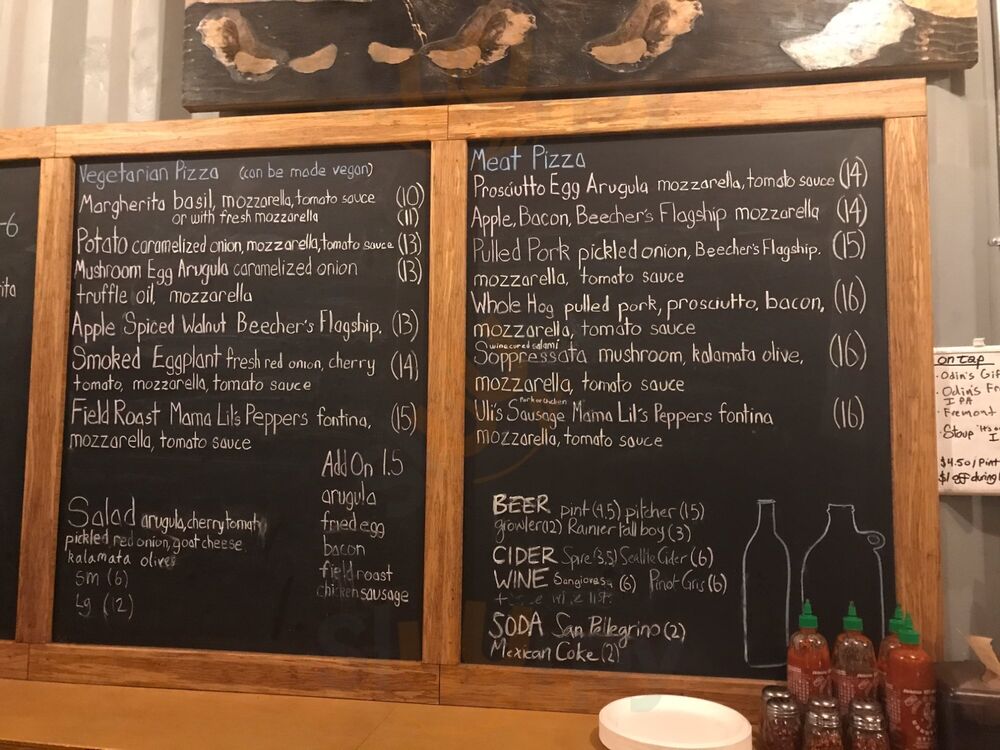 -6
ita
Vegetarian Pizza (can be made vegan)
Margherita basil, mozzarella, tomato sauce (10)
or with fresh mozzarella (11)
Potato caramelized onion, mozzarella, tomato sauce (13)
Mushroom Egg Arugula caramelized onion (13)
truffle oil, mozzarella
Apple Spiced Walnut Beecher's Flagship, (13)
Smoked Eggplant fresh red onion, cherry (14)
tomato, mozzarella, tomato sauce
Field Roast Mama Lil's Peppers fontina, (15)
mozzarella, tomato sauce
Add On 1.5
arugula
fried egg
bacon
field roast
chicken sausage
Salad arugula, cherry tomato
pickled red onion, goat cheese
kalamata olives
sm (6)
Lg (12)
Meat Pizza
Prosciutto Egg Arugula mozzarella, tomato sauce (14)
Apple, Bacon, Beecher's Flagship mozzarella (14)
Pulled Pork pickled onion, Beecher's Flagship. (15)
mozzarella, tomato sauce
Whole Hog pulled pork, prosciutto, bacon, (16)
mozzarella, tomato sauce
wine cured salami
Soppressata mushroom, kalamata olive, (16)
mozzarella, tomato sauce
Pork or Chicken
Uli's Sausage Mama Lil's Peppers fontina (16)
mozzarella, tomato sauce
BEER pint (4.5) pitcher (15)
growler (12) Rainier tall boy (3)
CIDER Spire (3.5) Seattle Cider (6)
WINE (6) Pinot Gris (6)
SODA San Pellegrino (2)
Mexican Coke (2)
on tap
• Odin's Gif
• Odin's Fr
IPA
• Fremont
• Stoup "It's
I
$4.50/Pint
$1 off during